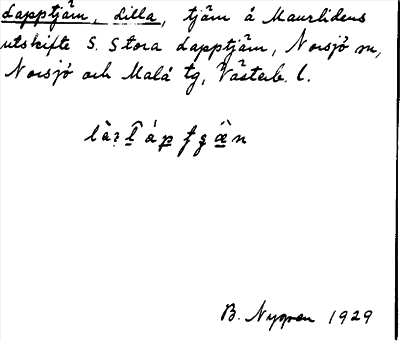 Lapptjärn, Lilla, tjärn å Maurlidens
utskifte S. Stora Lapptjärn, Norsjö sn,
Norsjö och Malå tg, Västerb. l.
B. Nygren 1929